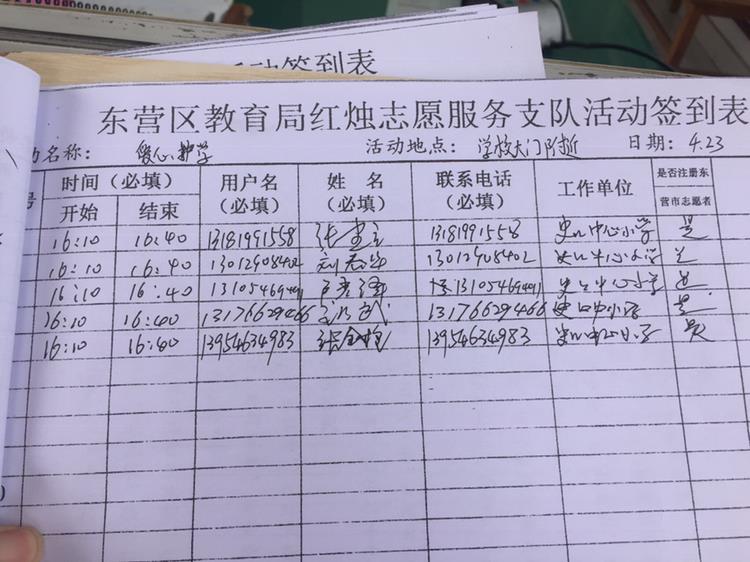 活动签到表
东营区教育局红烛志愿服务支队活动签到表
动名称： 爱心护学 活动地点： 学校大门附近 日期： 4.23
号 时间（必填） 用户名（必填） 姓 名（必填） 联系电话（必填） 工作单位（必填） 是否注册东营市志愿者
开始 结束
16:10 16:40 13181991558 张 13181991558 史口中心小学 是
16:10 16:40 13012908402 刘 13012908402 史口中心小学 是
16:10 16:40 13105469491 13105469491 史口中心小学 是
16:10 16:40 13176629466 13176629466 史口中心小学 是
16:10 16:40 13954634983 张 13954634983 史口中心小学 是